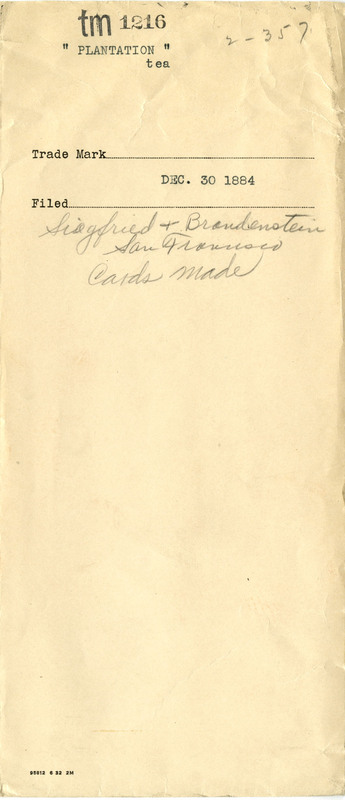 tm 1216
2-357
" PLANTATION "
tea
Trade Mark
DEC. 30 1884
Filed
Siegfried + Brandenstein
San Francisco
Cards made
95812 6 32 2M